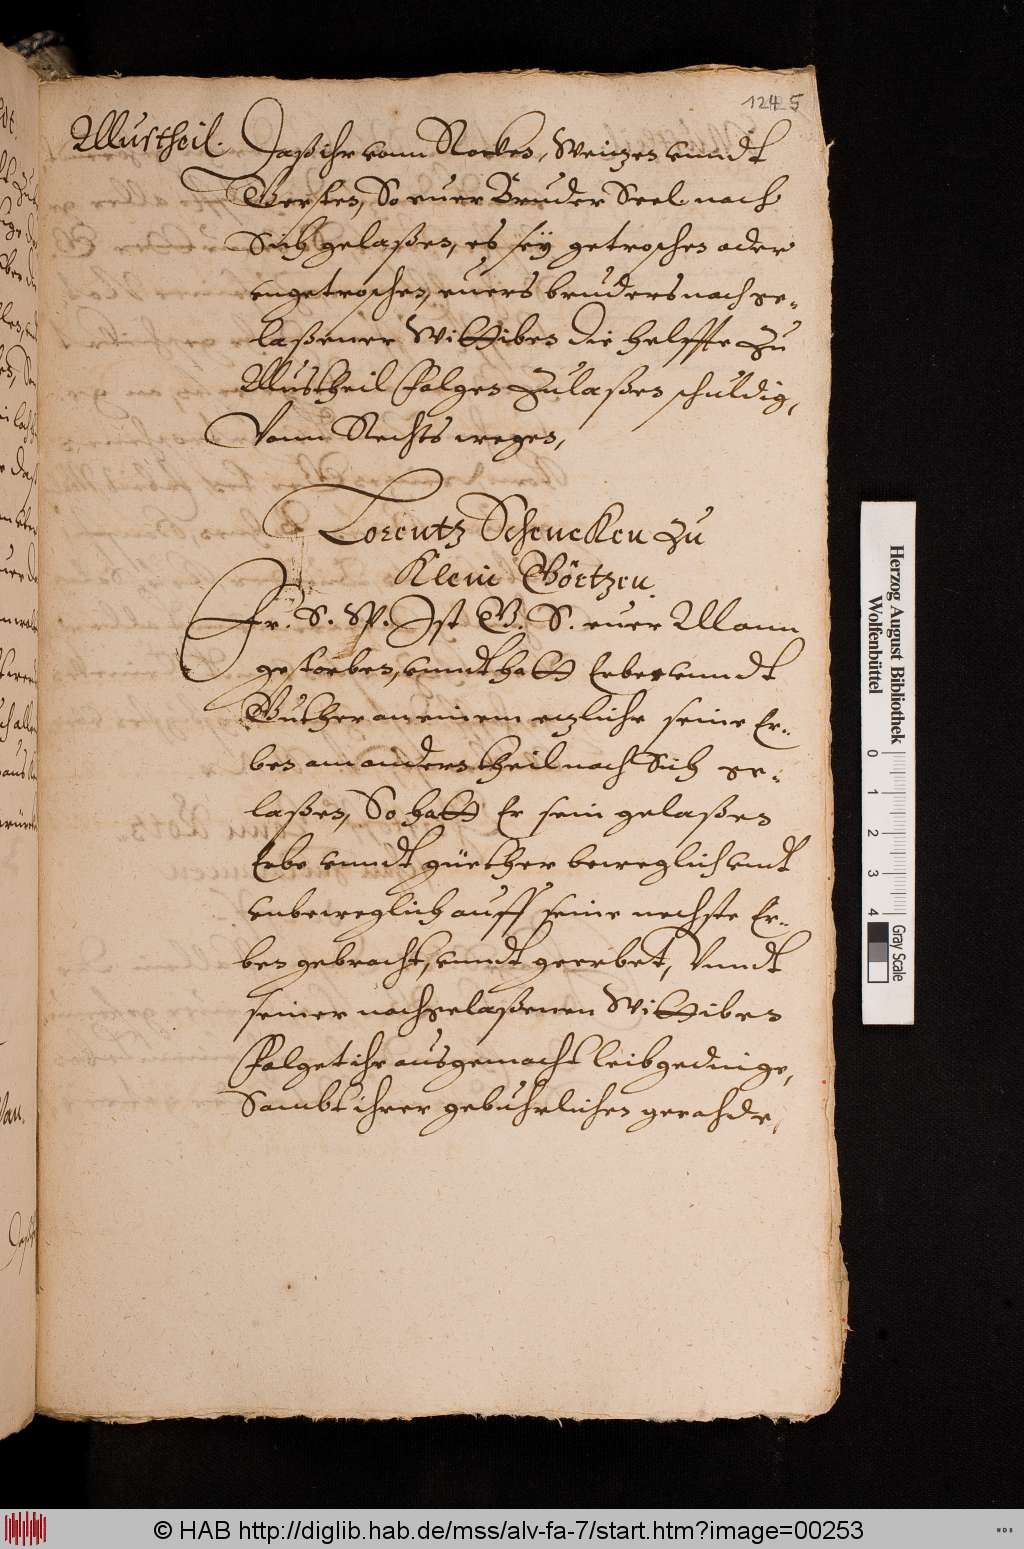 1245
Mustheil. Daß ihr vonn Rocken, Weitzen vnndt
Gersten, So euer Bruder Seel. nach
Sich gelaßen, es seÿ getroschen oder
vngetroschen, euers bruders nach ge-
laßener Wittiben die helffte zu
Mustheil folgen zulaßen schuldig,
Vonn Rechts wegen,
Lorentz Schencken zu
Klein Görtzen.
Fr. S. W. Ist G. S. euer Mann
gestorben, vnndt hatt Erbe vnndt
Guther an einem
ben am andern theil nach Sich ge-
laßen, So hatt Er sein gelaßen
Erbe vnndt güether beweglich vndt
vnbeweglich auff seine nechste Er-
ben gebracht, vnndt geerbet, Vnndt
seiner nachgelaßenen Wittiben
folget ihr ausgemacht leibgedinge,
Sambt ihrer gebuhrlichen gerahde,
Herzog August Bibliothek
Wolfenbüttel
0 1 2 3 4
Gray Scale
© HAB http://diglib.hab.de/mss/alv-fa-7/start.htm?image=00253